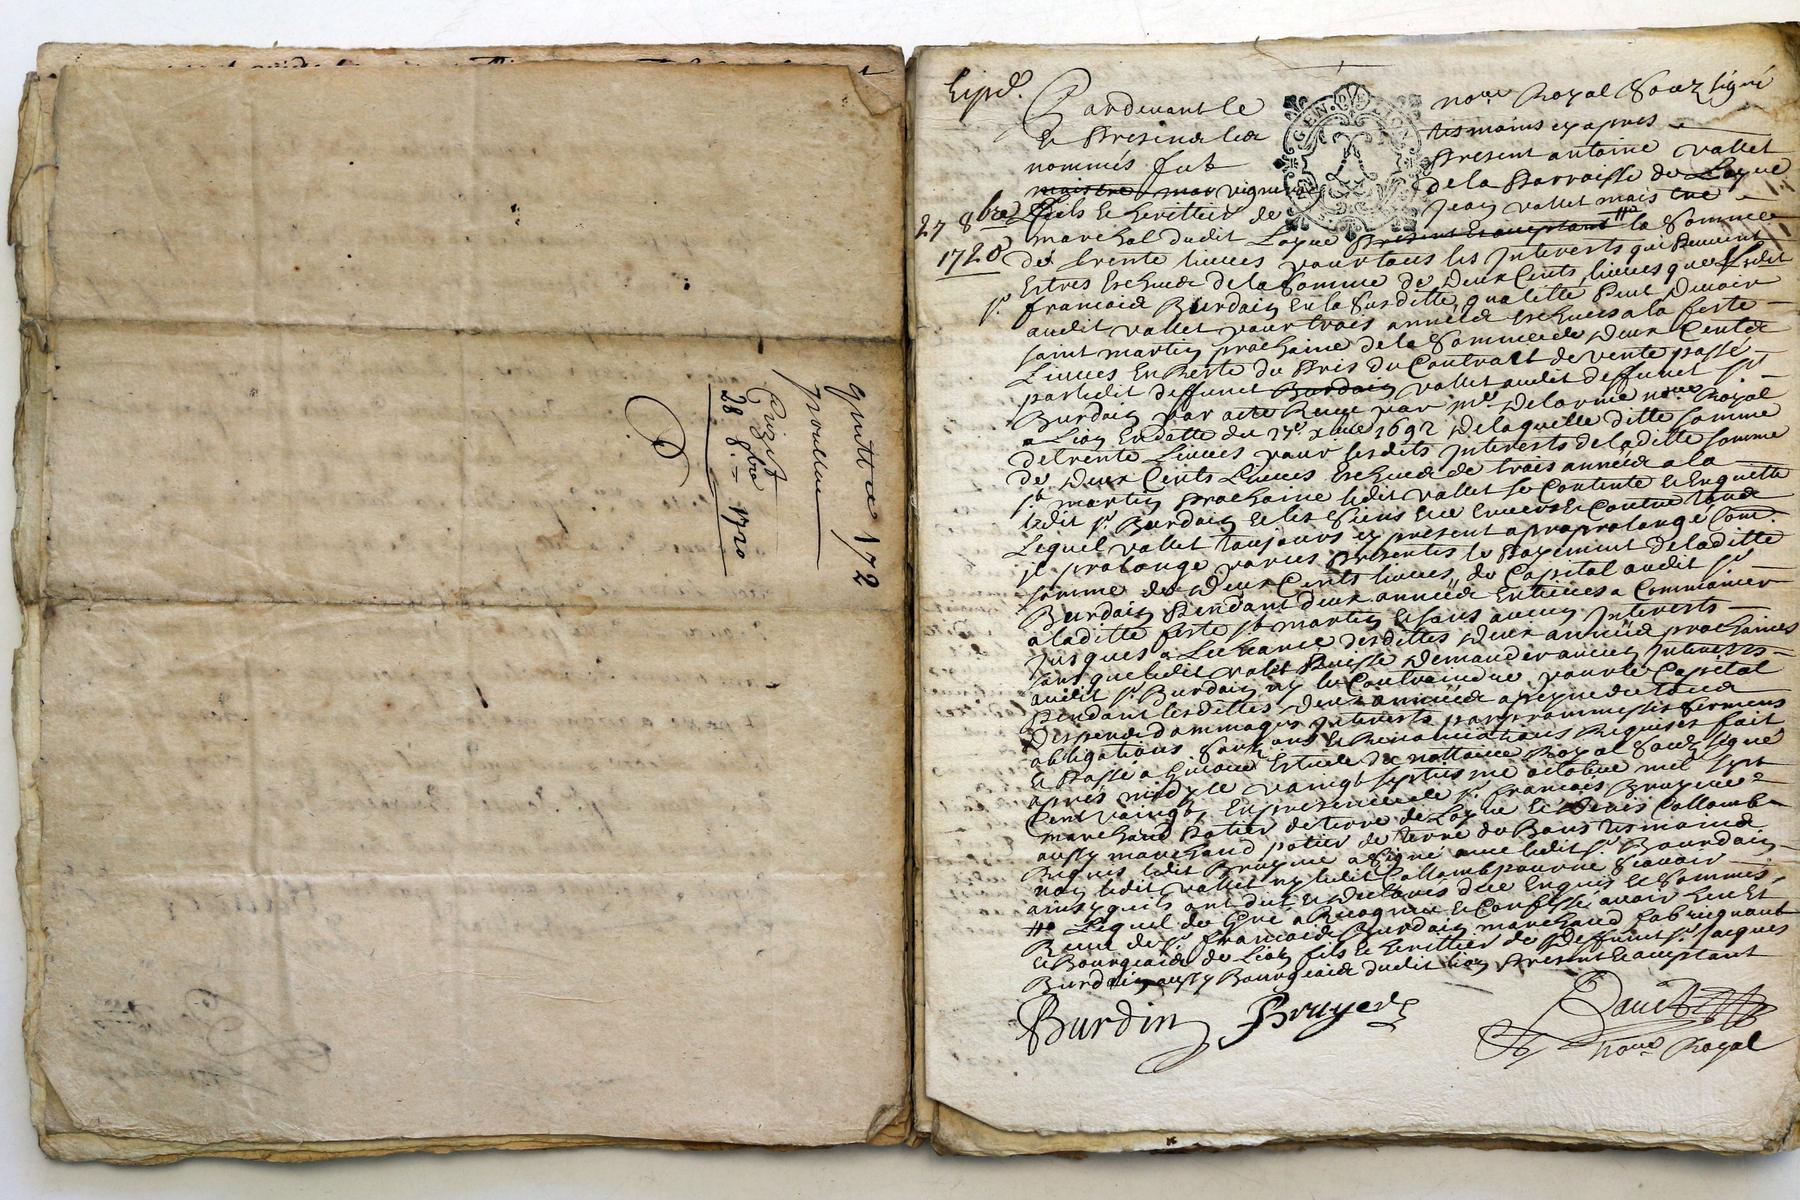 quittance 172
28 8bre 1720
Expd.
27 8bre
1720
GEN. DE LION
Pardevant le notre Royal Soubz signé
Et Presence des tesmoins cy apres
nommés fut Present antoine vallet
maistre mar vigneron de la Parroisse de Loyre
fils et heritier de Jean vallet maistre
marchal dudit Loyre Present et acceptant # la Somme
de trente livres pour tous les Interests qui Peuvent
Estres Escheus de la Somme de Deux Cents livres que ledit
sr. francois Burdain En la Susditte qualitté Peut Devoir
audit vallet pour trois années Escheues a la feste
saint martin prochaine de la Somme de Deux Cents
Livres En Reste du Pris du Contract de vente passé
par ledit deffunct Burdain vallet audit deffunct sr
Burdain par acte Receu par me Delorme notre Royal
a Lion En datte du 1692 De laquelle ditte somme
de trente Livres pour lesdits Interests de laditte somme
de Deux Cents Livres Escheus de trois années a la
st. martin Prochaine ledit vallet se Contente et En quitte
ledit sr. Burdain et les Siens Et Envers Et Contre tous
Lequel vallet toujours cy present a proprolongé Com.
il prolonge par ces Presentes le Payement de laditte
somme de Deux Cents livres du Capital audit sr
Burdain Pendant deux années Entieres a Commancer
a laditte feste st martin Et sans aucun Interests
Jusques a Lecheance desdittes Deux années prochaines
sans que ledit vallet Puisse Demander aucun Interests
audit sr Burdain ny le Contraindre pour le Capital
Pendant lesdittes Deux années a peyne de tous
Despens dommages Interests par promesses sermens
obligations Soubz ans Et Renonciations Requises fait
Et Passé a Givors Estude du nottaire Royal Soubz signé
aprés midy le vaingt septiesme octobre mil sept
Cent vaingt En presence de sr. francois Bruyere
marchand Potier de terre de Loyre Et Denis Collomb
aussy marchand potier de terre du Bans tesmoins
Requis ledit Bruyere a Signé avec ledit sr Bourdain
non ledit vallet ny ledit Collomb pour ne Scavoir
ainsy quils ont dit Et Declarés de ce Enquis Et Sommés
# Lequel de Gré a Recogneu Et Confessé avoir Heu Et
Receu de sr. francois Burdain marchand fabricquant
Et Bourgeois de Lion fils Et heritier de Deffunt sr. Jacques
Burdain aussy Bourgeois dudit lion Present Et acceptant
Burdin Bruyere
notre Royal